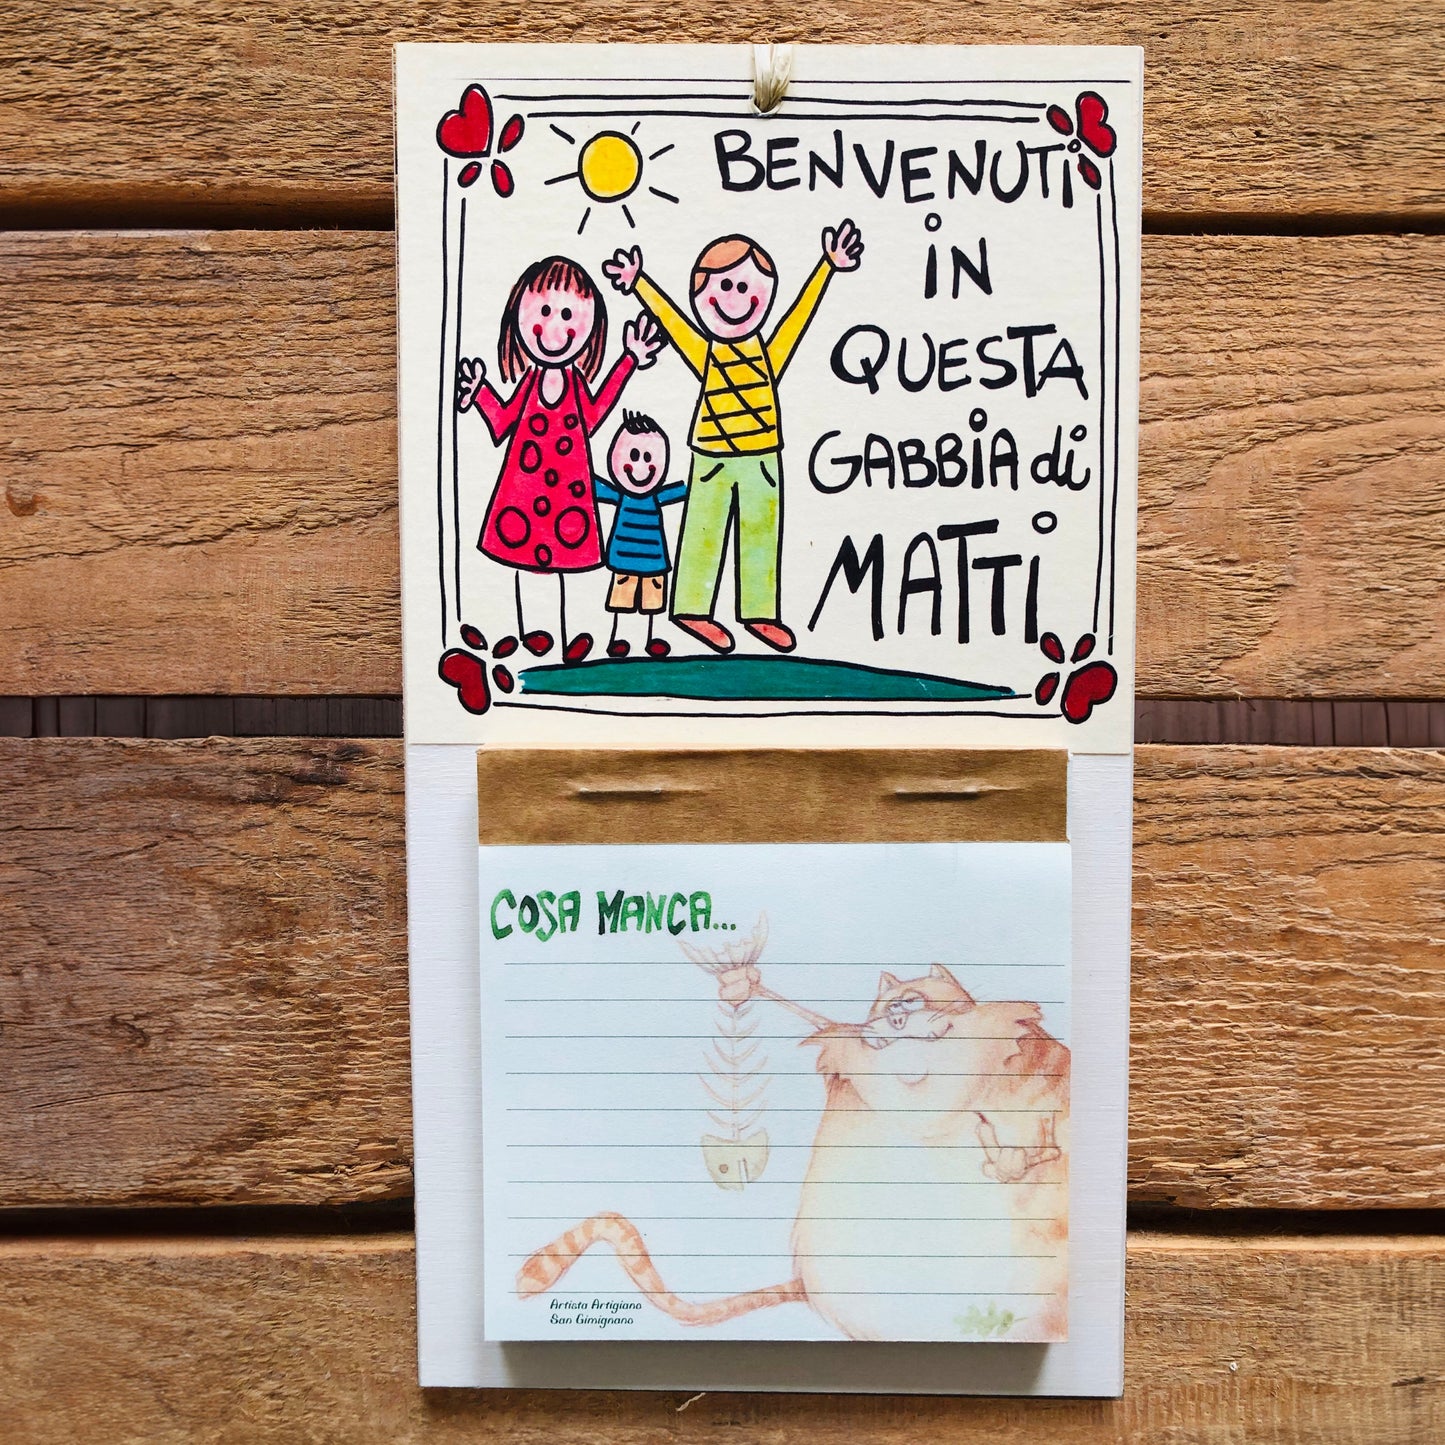 BENVENUTi
iN
QUESTA
GABBiA di
MATTi
COSA MANCA...
Artista Artigiano
San Gimignano